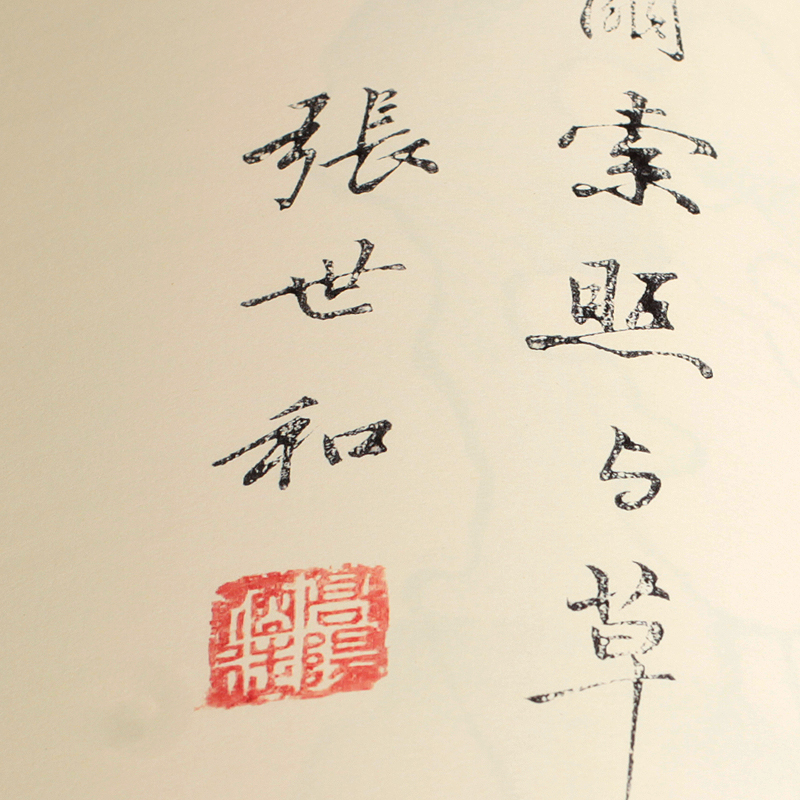 索照与草
張世和